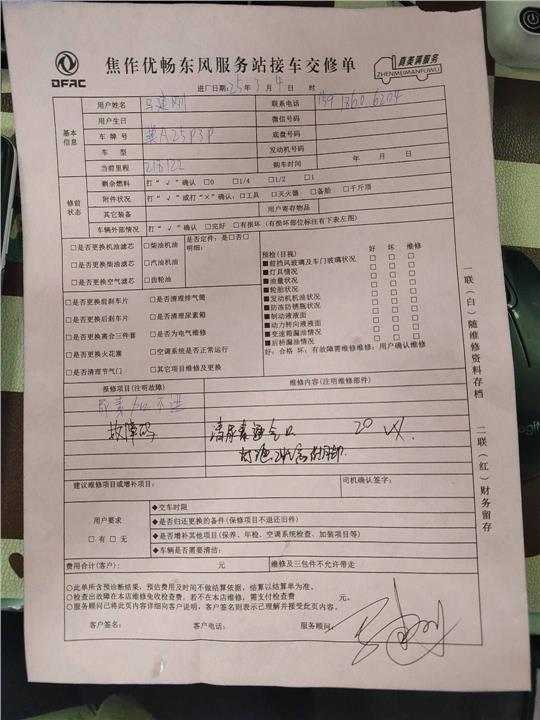 DFAC
焦作优畅东风服务站接车交修单
真美满服务
ZHENMEIMANFUWU
进厂日期: 25年 3月 4日 时
基本信息
用户姓名 马建刚 联系电话 159 1860 6204
用户生日 微信号码
车牌号 冀A25P3P 底盘号
车型 发动机号码
当前里程 218122 购车时间 年 月 日
修前状态
剩余燃料 打“√”确认 □0 □1/4 □1/2 □1
附件状况 打“√”或打“×”确认:□工具 □灭火器 □备胎 □千斤顶
其它装备 用户寄存物品
车辆外部情况 打“√”确认 □完好 □有损坏(有损坏部位标注有下表左图)
□是否更换机油滤芯 □柴油机油 是否定件:是□否□
□是否更换柴油滤芯 □汽油机油 明细:
□是否更换空气滤芯 □齿轮油
□是否更换前刹车片 □是否清理排气筒
□是否更换后刹车片 □是否清理尿素箱
□是否更换离合三件套 □是否为电气维修
□是否更换火花塞 □空调系统是否正常运行
□是否清理节气门 □其它项目维修及更换
预检(目视) 好 坏 维修
■前挡风玻璃及车门玻璃状况 □ □ □
■灯具情况 □ □ □
■油量状况 □ □ □
■轮胎状况 □ □ □
■发动机机油状况 □ □ □
■防冻防锈瓶状况 □ □ □
■制动液液面 □ □ □
■动力转向液液面 □ □ □
■变速箱漏油情况 □ □ □
■后桥漏油情况 □ □ □
好:合格 坏:有故障需维修维修:用户确认维修
报修项目(注明故障) 维修内容(注明维修部件)
尿素加不进
故障码 清尿素 20
建议维修项目或增补项目: 司机确认签字:
用户要求
□有 □无
◆交车时限
◆是否归还更换的备件(保修项目不退还旧件)
◆是否增补其他项目(保养、年检、空调系统检查、加装项目等)
◆车辆是否需要清洁:
费用合计(客户): 元 维修及三包件不允许带走
○此单所含预诊断结果,预估费用及时间不做结算依据,结算以结算单为准。
○检查出故障在本店维修免收检查费。若不在本店维修,需支付检查费 元。
○服务顾问已将此页内容详细向客户说明,客户签名则表示已理解并接受此页内容。
客户签名: 客户电话: 服务顾问:
一联(白)随维修资料存档
二联(红)财务留存